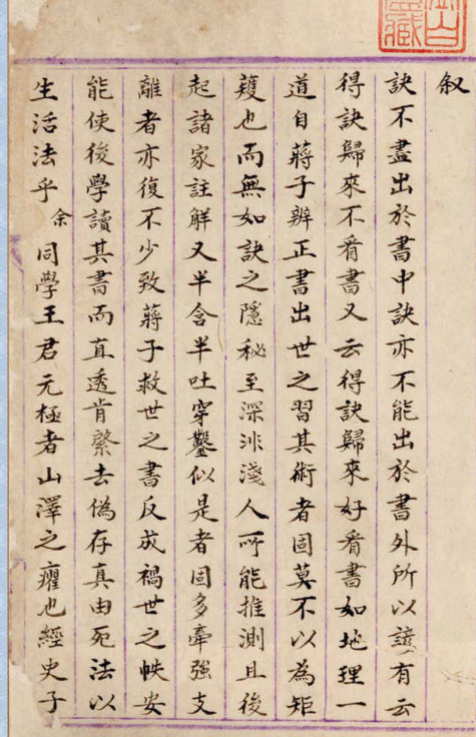 叙
訣不盡出於書中訣亦不能出於書外所以諺有云
得訣歸來不看書又云得訣歸來好看書如地理一
道自蔣子辨正書出世之習其術者固莫不以為矩
矱也而無如訣之隱秘至深非淺人所能推測且後
起諸家註解又半含半吐穿鑿似是者固多牽強支
離者亦復不少致蔣子救世之書反成禍世之帙安
能使後學讀其書而直透肯綮去偽存真由死法以
生活法乎余同學王君元極者山澤之癯也經史子